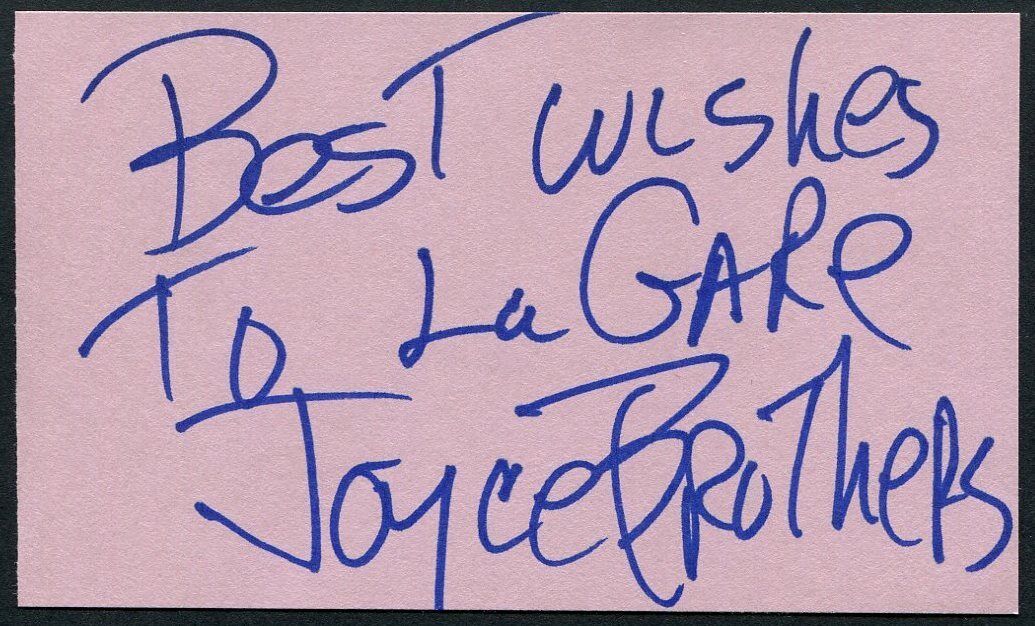 BesT wishes
To La GARe
Joyce BRoThers